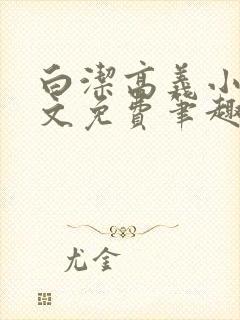 白潔高義小
文免費筆趣
尤金